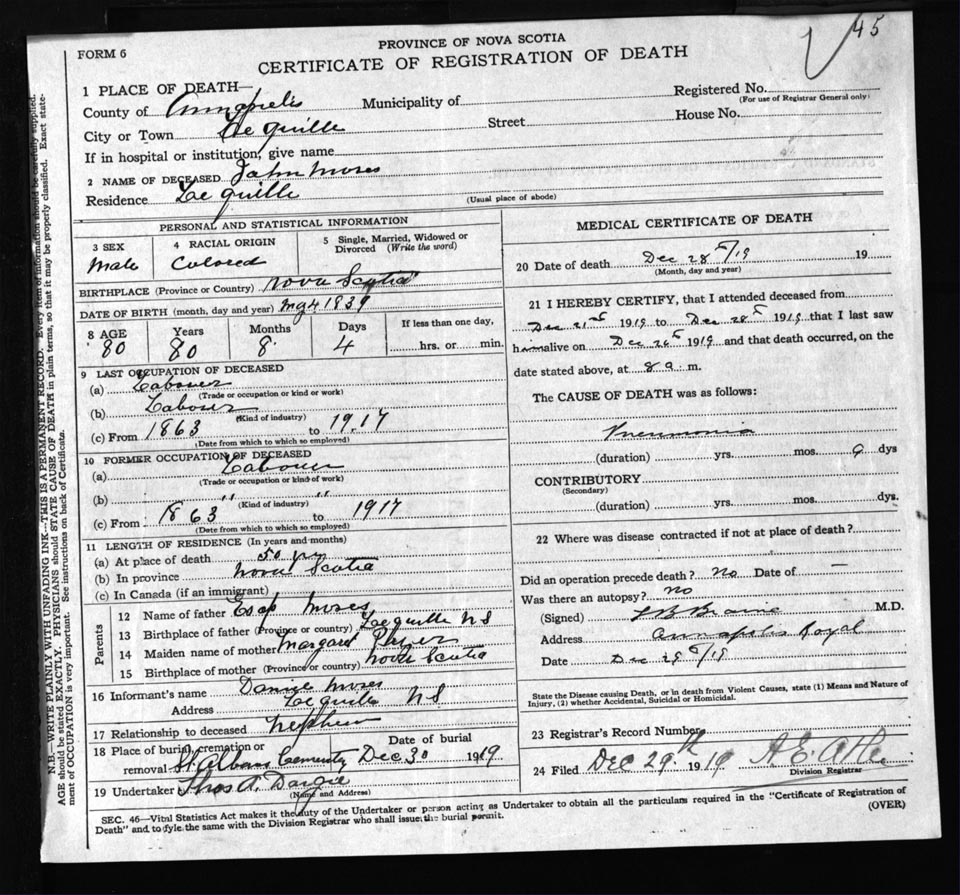 45
FORM 6
PROVINCE OF NOVA SCOTIA
CERTIFICATE OF REGISTRATION OF DEATH
1 PLACE OF DEATH—
Registered No.
(For use of Registrar General only)
County of Annapolis Municipality of
City or Town Lequille Street House No.
If in hospital or institution, give name
2 NAME OF DECEASED John Moses
Residence Lequille
(Usual place of abode)
PERSONAL AND STATISTICAL INFORMATION
3 SEX
Male
4 RACIAL ORIGIN
Colored
5 Single, Married, Widowed or Divorced (Write the word)
BIRTHPLACE (Province or Country) Nova Scotia
DATE OF BIRTH (month, day and year) 1839
8 AGE Years Months Days If less than one day,
80 80 8 4 hrs. or min.
9 LAST OCCUPATION OF DECEASED
(a) Labourer
(Trade or occupation or kind or work)
(b) Labour
(Kind of industry)
(c) From 1863 to 1917
(Date from which to which so employed)
10 FORMER OCCUPATION OF DECEASED
(a) Labourer
(Trade or occupation or kind of work)
(b) " "
(Kind of industry)
(c) From 1863 to 1917
(Date from which to which so employed)
11 LENGTH OF RESIDENCE (In years and months)
(a) At place of death 50 yrs
(b) In province Nova Scotia
(c) In Canada (if an immigrant)
Parents
12 Name of father Moses
13 Birthplace of father (Province or country) Lequille N S
14 Maiden name of mother Margaret
15 Birthplace of mother (Province or country) Nova Scotia
16 Informant's name Daniel Moses
Address Lequille N S
17 Relationship to deceased Nephew
18 Place of burial, cremation or removal St Albans Cemetery
Date of burial Dec 30 1919
19 Undertaker Thos A. Dargie
(Name and Address)
MEDICAL CERTIFICATE OF DEATH
20 Date of death Dec 28th/19 19
(Month, day and year)
21 I HEREBY CERTIFY, that I attended deceased from
Dec 21st 1919 to Dec 28th 1919 that I last saw
him alive on Dec 26th 1919 and that death occurred, on the
date stated above, at 8 a. m.
The CAUSE OF DEATH was as follows:
Pneumonia
(duration) yrs. mos. 9 dys
CONTRIBUTORY
(Secondary)
(duration) yrs. mos. dys.
22 Where was disease contracted if not at place of death?
Did an operation precede death? No Date of —
Was there an autopsy? no
(Signed) M.D.
Address Annapolis Royal
Date Dec 29th/19
State the Disease causing Death, or in death from Violent Causes, state (1) Means and Nature of
Injury, (2) whether Accidental, Suicidal or Homicidal.
23 Registrar's Record Number
24 Filed Dec 29th 1919
Division Registrar
SEC. 46—Vital Statistics Act makes it the duty of the Undertaker or person acting as Undertaker to obtain all the particulars required in the "Certificate of Registration of
Death" and to fyle the same with the Division Registrar who shall issue the burial permit.
(OVER)
N.B.—WRITE PLAINLY WITH UNFADING INK—THIS IS A PERMANENT RECORD. Every item of information should be carefully supplied.
AGE should be stated EXACTLY. PHYSICIANS should STATE CAUSE OF DEATH in plain terms, so that it may be properly classified. Exact state-
ment of OCCUPATION is very important. See instructions on back of Certificate.